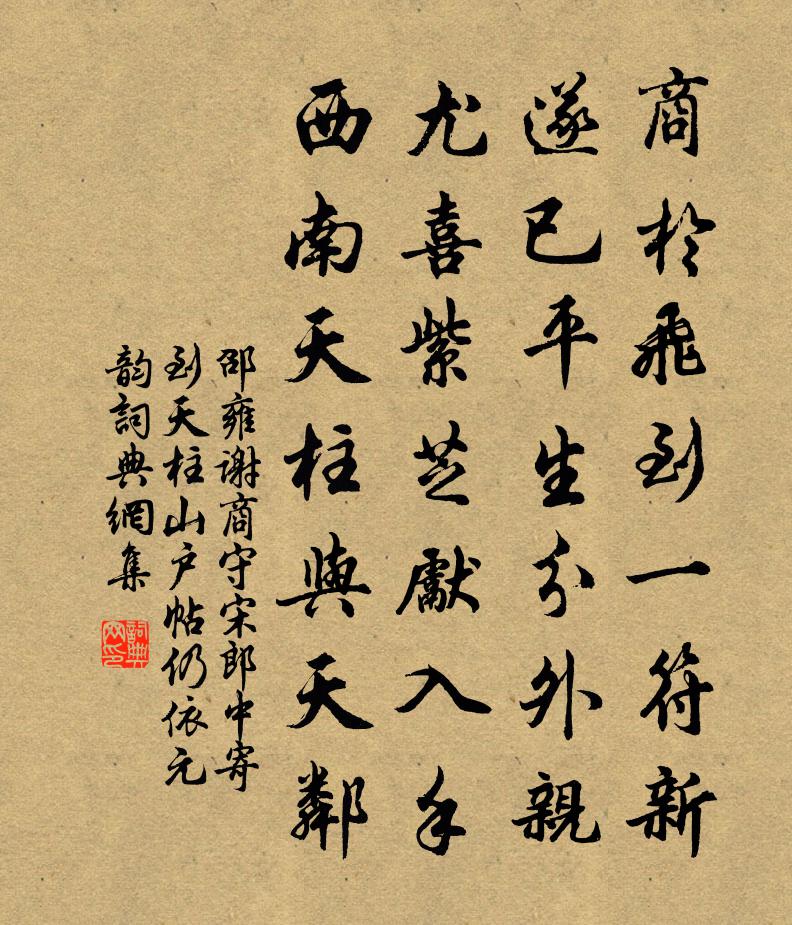 商於飛到一符新
遂已平生分外親
尤喜紫芝獻入手
西南天柱與天鄰
邵雍謝商守宋郎中寄
到天柱山户帖仍依元
韵詞典網集
詞典網印